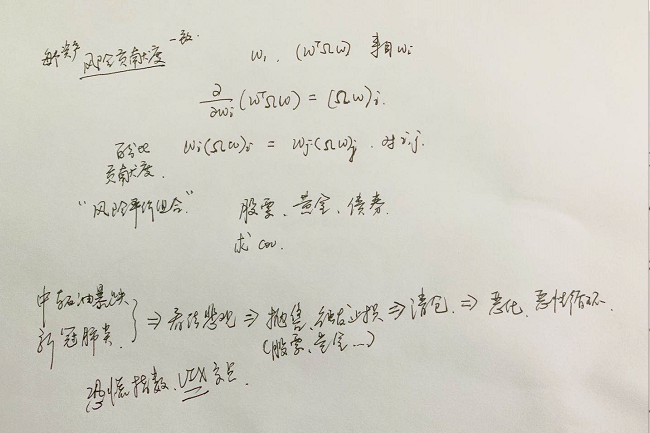 每个资产 风险贡献度 一致. wᵢ. (wᵀΩw) wᵢ
∂/∂wᵢ (wᵀΩw) = (Ωw)ᵢ.
百分比 贡献度. wᵢ(Ωw)ᵢ = wⱼ(Ωw)ⱼ. 对 i,j.
"风险平价组合" 股票、黄金、债券.
求 cov.
石油暴跌
新冠肺炎 } ⇒ 悲观 ⇒ 抛售、止损 ⇒ 清仓. ⇒ 恶化、恶性循环.
(股票、黄金...)
恐慌指数、VIX